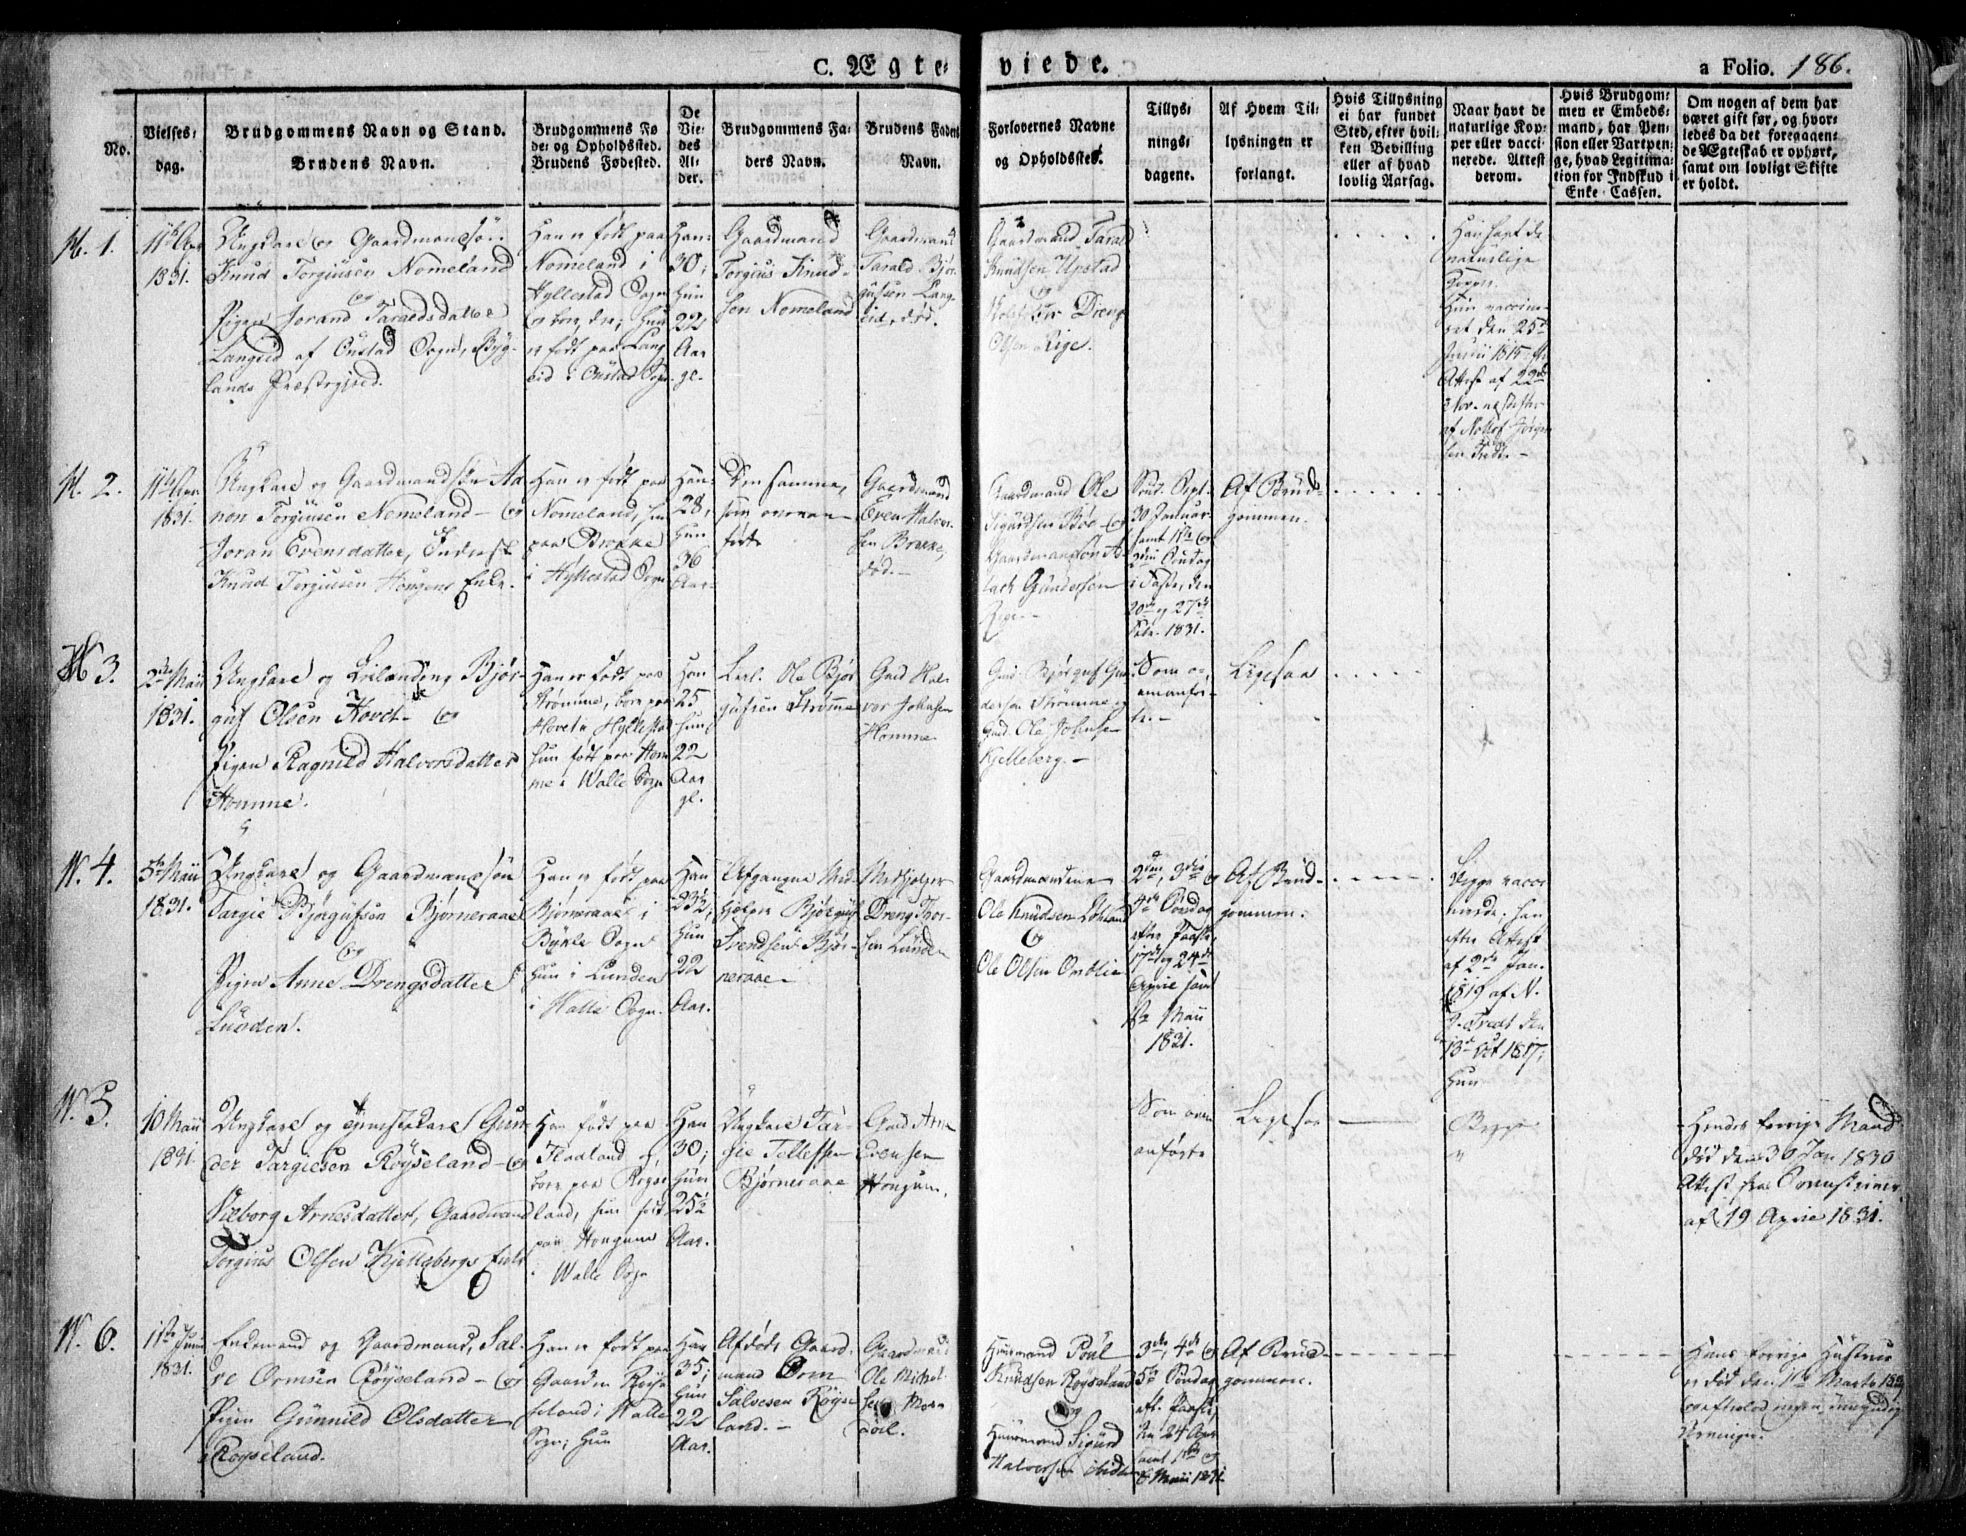 C. Ægte-
viede.
a Folio. 186.
No.
Vielses-
dag.
Brudgommens Navn og Stand.
Brudens Navn.
Brudgommens Fø
de- og Opholdssted.
Brudens Fødested.
De
Vie-
des
Al-
der.
Brudgommens Fa-
ders Navn.
Brudens Faders
Navn.
Forlovernes Navne
og Opholdssted.
Tillys-
nings-
dagene.
Af Hvem Til-
lysningen er
forlangt.
Hvis Tillysning
ei har fundet
Sted, efter hvil-
ken Bevilling
eller af hvad
lovlig Aarsag.
Naar havt de
naturlige Kop-
per eller vacci-
nerede. Attest
derom.
Hvis Brudgom-
men er Embeds-
mand, har Pen-
sion eller Vartpen-
ge, hvad Legitima-
tion for Indskud i
Enke-Cassen.
Om nogen af dem har
været gift før, og hvor-
ledes da det foregaaen-
de Ægteskab er ophørt,
samt om lovligt Skifte
er holdt.
N. 1.
1831.
Ungkarl og Gaardmandssøn
Knud Torgiusen Nomeland
og
Pigen Jorand Taraldsdatter
Langeid af Sogn, Byg-
lands Præstegjeld.
Han er født paa
Nomeland i
Hyllestad Sogn
Hun
er født paa Lang
eid i Sogn.
Han
30,
Hun
22
Aar
gl.
Gaardmand
Torgius Knud-
sen Nomeland
Gaardmand
Tarald Bjør-
gufsen Lang-
eid, død.
Gaardmand Tarald
Knudsen Upstad
og
Dreng
Olsen Rige.
Han havt de
naturlige
Kopper.
Hun vaccine-
ret den 25
1815
Attest af 22
N. 2.
1831.
Ungkarl og Gaardmandssøn Aa
non Torgiusen Nomeland - og
Joran Evensdatter,
Knud Torgiusen Hougens Enke.
Han er født paa
Nomeland, hun
paa Brokke
i Hyllestad Sogn
Han
28,
Hun
36
Aar.
Den samme,
som ovenan-
ført
Gaardmand
Even Halvor-
sen Brokke,
død.
Gaardmand Ole
Sigurdsen Bøe - og
Gaardmandssøn A-
Gundersen
Rige.
30 Januar
samt 1ste og
2den Søndag
i Faste, den
20de og 27de
Febr. 1831.
Af Brud-
gommen.
N. 3.
2den Maii
1831.
Ungkarl og Bjør-
guf Olsen Hovet - og
Pigen Ragnild Halvorsdatter
Homme.
Han er født paa
Strømme, boer paa
Hovet i Hyllestad
Hun født paa Hom
me i Walle Sogn
Han
25
Hun
22
Aar
gl.
Ole Bjør
gufsen Strømme
Gmd Hal-
vor Johnsen
Homme
Gmd. Bjørguf Gun
dersen Strømme og
Gmd. Ole Johnsen
Kjelleberg.
Som o-
venanfør-
te.
Ligesaa
N. 4.
5te Maii
1831.
Ungkarl og Gaardmandssøn
Targie Bjørgufsen Bjørneraae
og
Pigen Anne Drengsdatter
Lunden.
Han er født paa
Bjørneraae i
Bykle Sogn
Hun i Lunden
i Walle Sogn.
Han
23½,
Hun
22
Aar.
Afgangne Med-
hjelper Bjørguf
Svendsen Bjør-
neraae
Medhjelper
Dreng Thor-
sen Lunden
Gaardmændene
Ole Knudsen
og
Ole Olsen
2den, 3die og
4de Søndag
efter Paaske,
17de og 24de
April samt
1ste Maii
1831.
Af Brud-
gommen.
Begge vacci
nerede, han
efter Attest
af 2de Jan.
1819 af N.
J. Tredt den
13de Oct 1817;
Hun
N. 5.
10 Maii
1831
Ungkarl og Gun-
der Targiesen Røyseland - og
Sieborg Arnesdatter, Gaardmand
Torgius Olsen Kjellebergs Enke
Han født paa
Flateland og
boer paa Røyse
land, hun født
paa Hougum
i Walle Sogn
Han
30;
Hun
25½
Aar.
Ungkarl Tar-
gie Tellefsen
Bjørneraae
Gmd Arne
Evensen
Hougum.
Som oven
anførte
Ligesaa
Begge
"
Hendes forrige Mand
død den 30 Jan 1830
Attest fra
af 19 April 1831.
N. 6.
11te Juni
1831.
Enkemand og Gaardmand, Sal-
ve Ormsen Røyseland - og
Pigen Gunnild Olsdatter
Røyseland.
Han er født paa
Gaarden Røyse
land i Walle
Sogn; Hun
Han
35;
Hun
22
Aar.
Afdøde Gaard-
mand Orm
Salvesen Røyse
land.
Gaardmand
Ole Michel-
sen
Huusmand Poul
Knudsen Røyseland
og
Huusmand Sigurd
Halvorsen
3die, 4de og
5te Søndag
eft. Paaske,
den 24 Apr
samt 1ste og
8 Maii 1831
Af Brud-
gommen.
Hans forrige Hustrue
er død den 1ste Marts